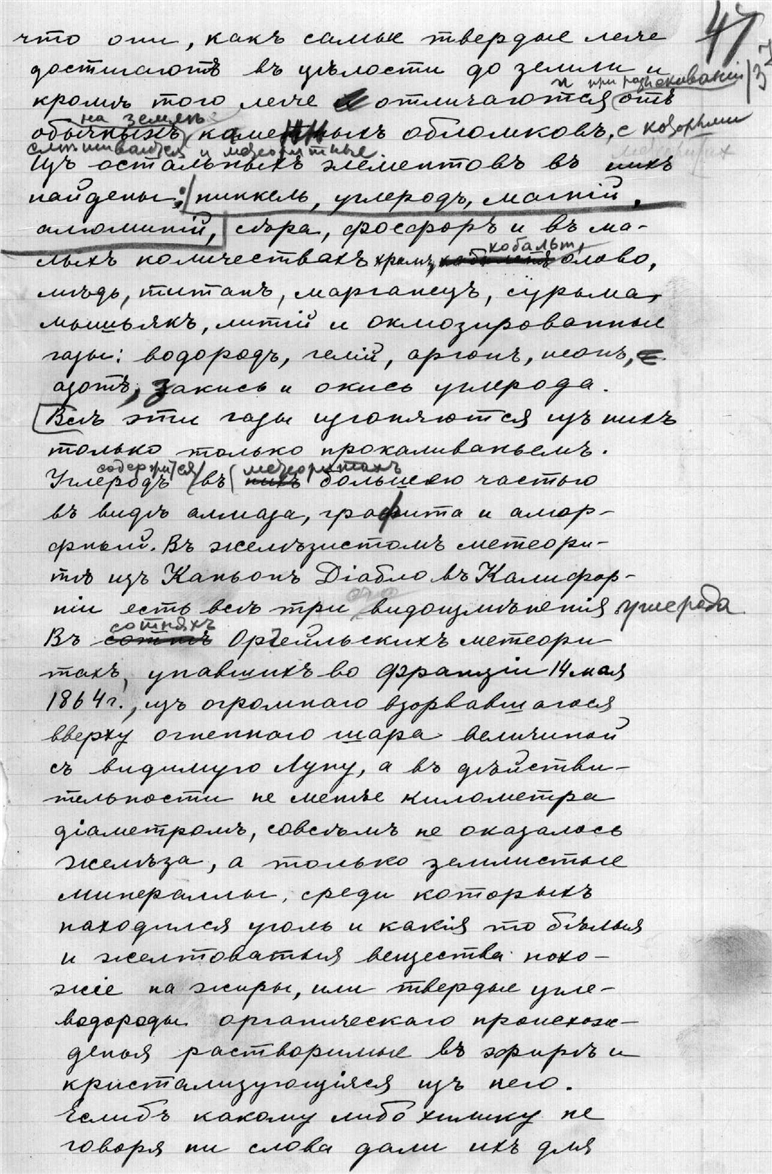 47
что они, какъ самые твердые легче
достигаютъ въ цѣлости до земли и
и при разыскованіи 37
кромѣ того легче отличаются отъ
на землѣ
обычныхъ каменныхъ обломковъ, с которыми
смѣшиваются и метеоритные
Изъ остальныхъ элементовъ въ нихъ
найдены: никкель, углеродъ, магній,
алюминій, сѣра, фосфоръ и въ ма-
кобальт,
лыхъ количествахъ хромъ, олово,
мѣдь, титанъ, марганецъ, сурьма,
мышьякъ, литій и оклюзированные
газы: водородъ, гелій, аргонъ, неонъ,
азотъ, закись и окись углерода.
Всѣ эти газы изгоняются изъ нихъ
только только прокаливаньемъ.
содержится метеоритахъ
Углеродъ въ нихъ большею частью
въ видѣ алмаза, графита и амор-
фный. Въ желѣзистомъ метеори-
тѣ изъ Каньонъ Діабло въ Калифор-
ніи есть всѣ три его видоизмѣненія углерода
сотняхъ
Въ Оргейльскихъ метеори-
тахъ, упавшихъ во Франціи 14 мая
1864 г., изъ огромнаго взорвавшагося
вверху огненнаго шара величиной
съ видимую Луну, а въ дѣйстви-
тельности не менѣе километра
діаметромъ, совсѣмъ не оказалось
желѣза, а только землистые
минераллы, среди которыхъ
находился уголь и какія то бѣлыя
и желтоватыя вещества похо-
жіе на жиры, или твердые угле-
водороды органическаго происхож-
денья растворимые въ эфирѣ и
кристализующіяся изъ него.
Еслибъ какому либо химику не
говоря ни слова дали ихъ для